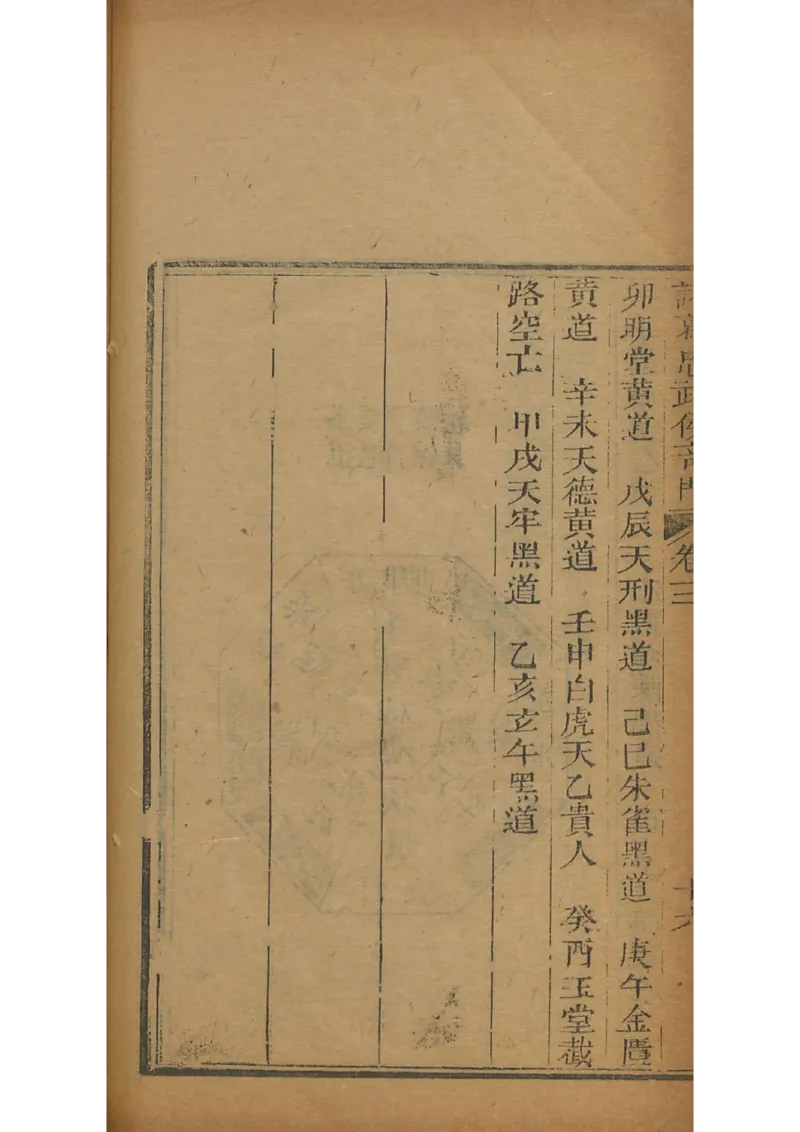 諸葛忠武侯奇門 卷三 十六
卯明堂黃道 戊辰天刑黑道 己巳朱雀黑道 庚午金匱
黃道 辛未天德黃道 壬申白虎天乙貴人 癸酉玉堂截
路空亡 甲戌天牢黑道 乙亥玄午黑道